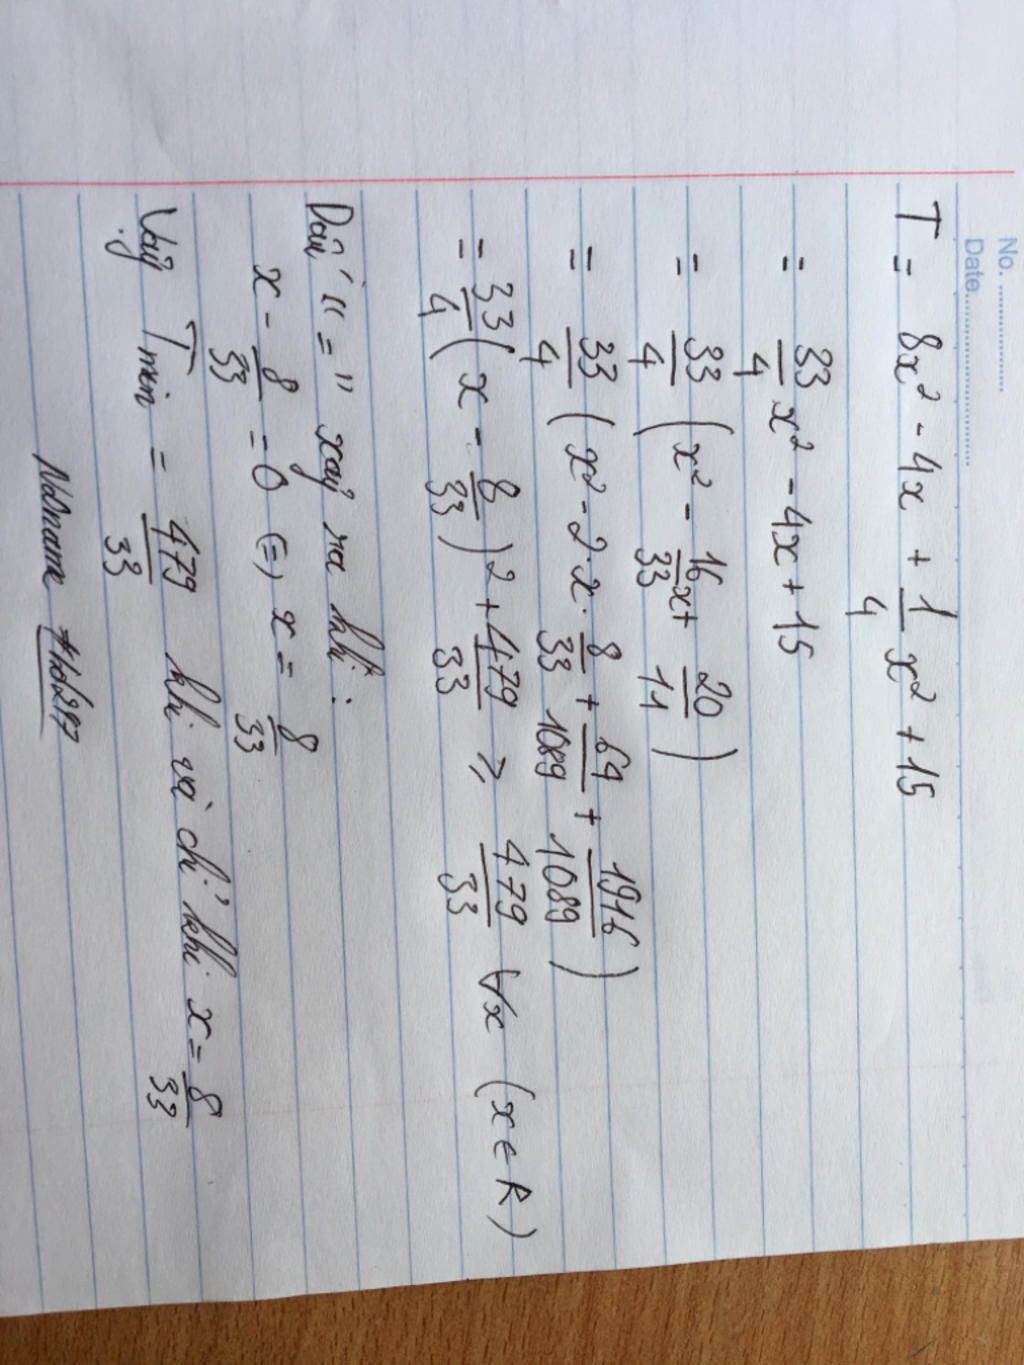 No. ....................
Date..............................
T = 8x² - 4x + 1/4 x² + 15
= 33/4 x² - 4x + 15
= 33/4 (x² - 16/33 x + 20/11)
= 33/4 (x² - 2.x. 8/33 + 64/1089 + 1916/1089)
= 33/4 (x - 8/33)² + 479/33 ≥ 479/33 ∀x (x ∈ R)
Dấu "=" xảy ra khi:
x - 8/33 = 0 (=) x = 8/33
Vậy T min = 479/33 khi và chỉ khi x = 8/33
NoOname